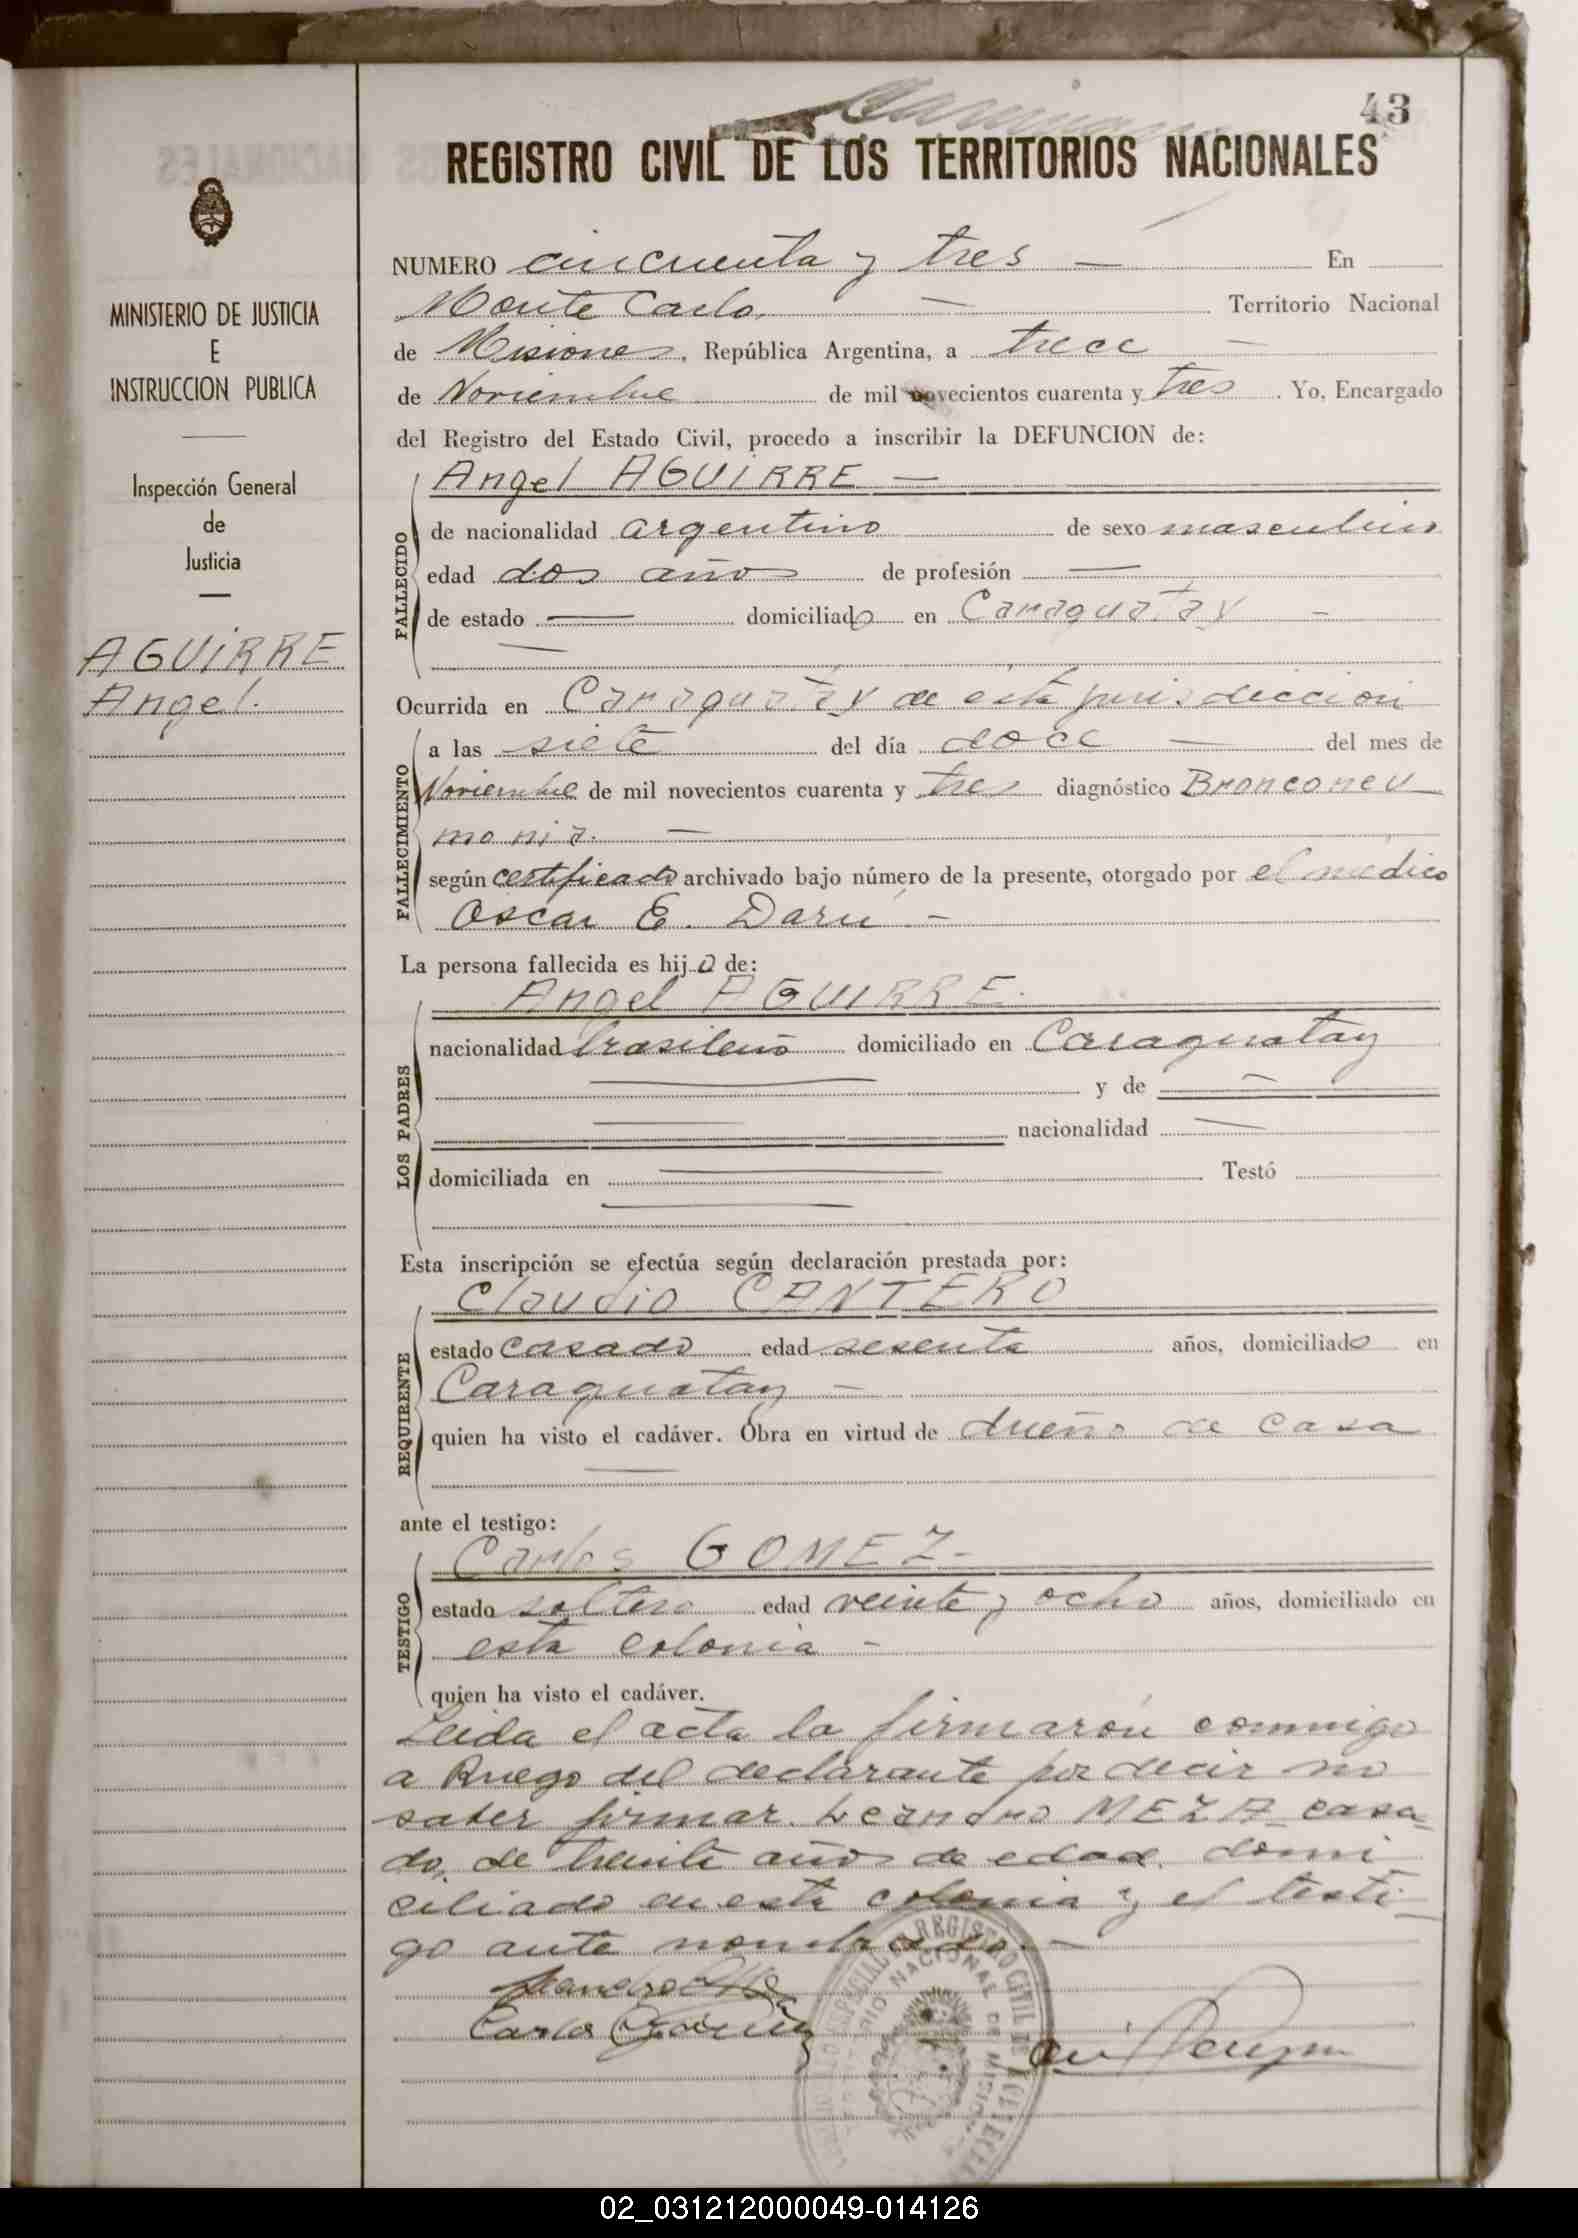 43
REGISTRO CIVIL DE LOS TERRITORIOS NACIONALES
MINISTERIO DE JUSTICIA
E
INSTRUCCION PUBLICA
Inspección General
de
Justicia
AGUIRRE
Angel.
NUMERO cincuenta y tres — En
Monte Carlo. — Territorio Nacional
de Misiones, República Argentina, a trece —
de Noviembre de mil novecientos cuarenta y tres. Yo, Encargado
del Registro del Estado Civil, procedo a inscribir la DEFUNCION de:
Angel AGUIRRE —
FALLECIDO
de nacionalidad argentino de sexo masculino
edad dos años de profesión —
de estado — domiciliado en Caraguatay —
Ocurrida en Caraguatay de esta jurisdiccion
FALLECIMIENTO
a las siete del día doce — del mes de
Noviembre de mil novecientos cuarenta y tres diagnóstico Bronconeu
monia. —
según certificado archivado bajo número de la presente, otorgado por el médico
Oscar E. Darú —
La persona fallecida es hijo de:
Angel AGUIRRE.
LOS PADRES
nacionalidad brasileño domiciliado en Caraguatay
— y de —
— nacionalidad —
domiciliada en — Testó
Esta inscripción se efectúa según declaración prestada por:
Claudio CANTERO
REQUIRENTE
estado casado edad sesenta años, domiciliado en
Caraguatay —
quien ha visto el cadáver. Obra en virtud de dueño de casa
ante el testigo:
Carlos GOMEZ-
TESTIGO
estado soltero edad veinte y ocho años, domiciliado en
esta colonia -
quien ha visto el cadáver.
Leida el acta la firmarón conmigo
a Ruego del declarante por decir no
saber firmar. Leandro MEZA casa-
do, de treinta años de edad, domi
ciliado en esta colonia y el testi-
go ante nombrado. —
Leandro
Carlos Gomez
REGISTRO CIVIL DE
NACIONAL DE MISIONES
02_031212000049-014126